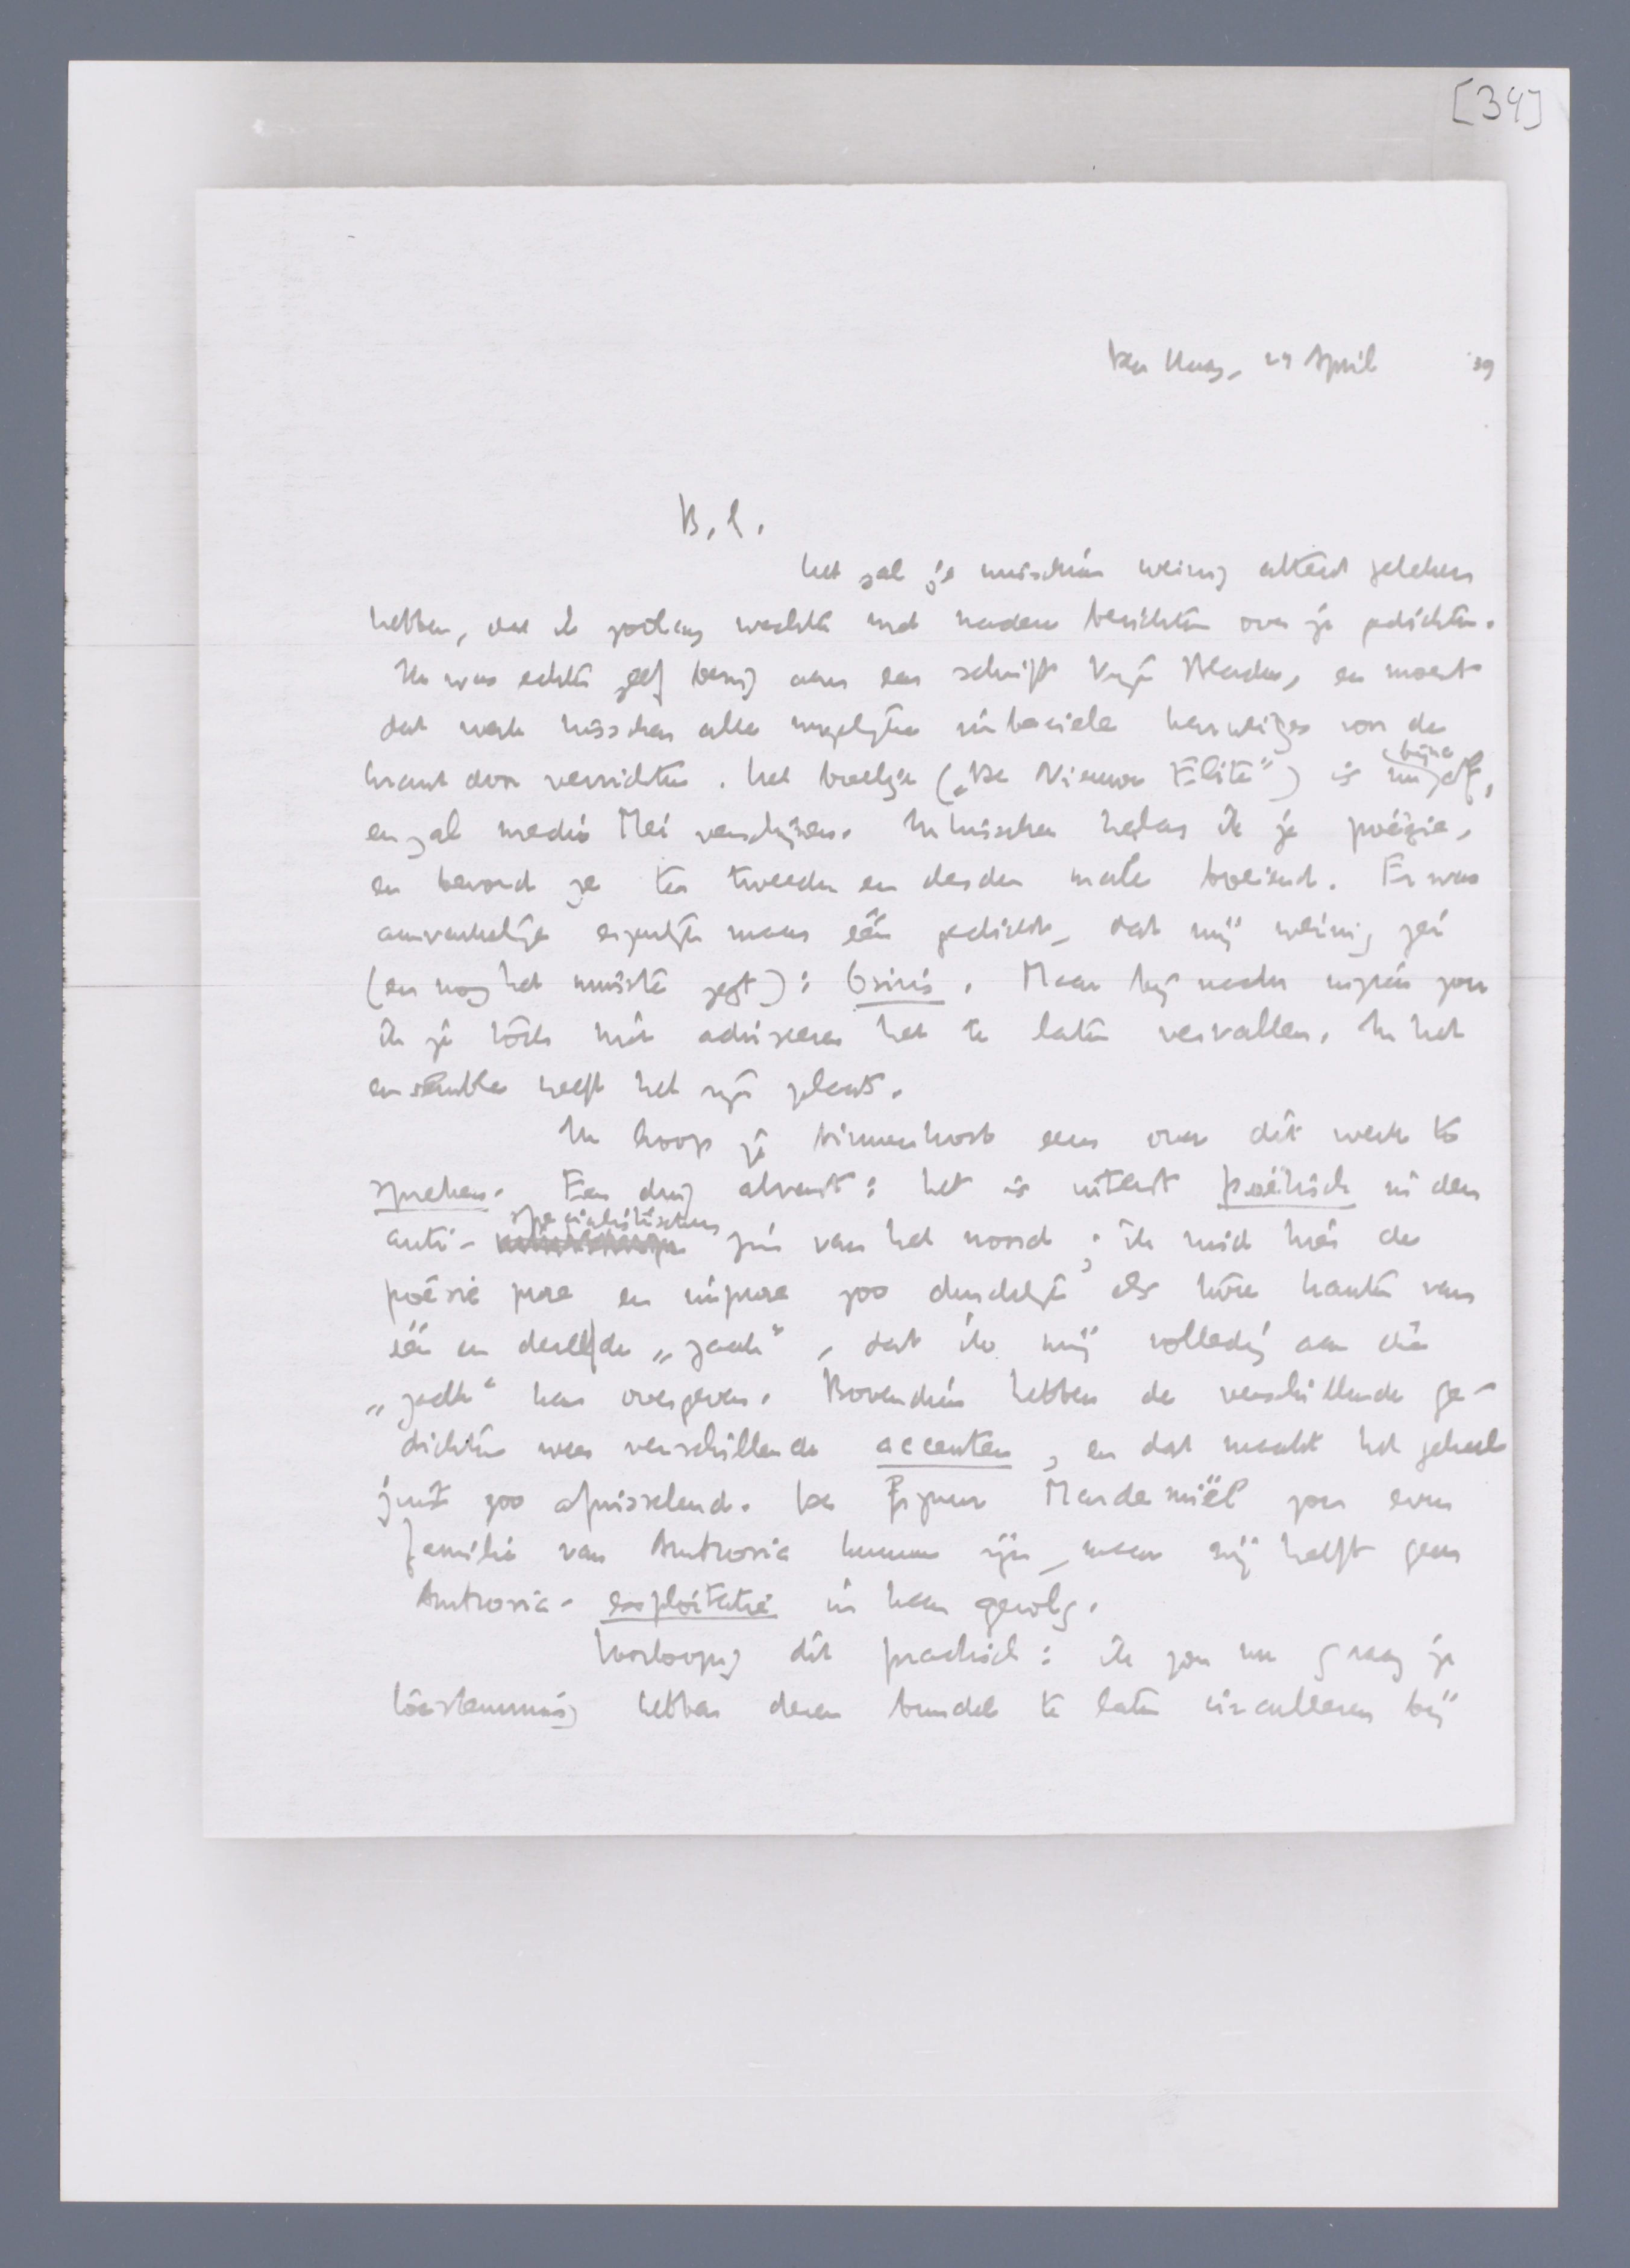 [34]
Den Haag, 24 April '39
B.L.
het zal je misschien weinig attent geleken
hebben, dat ik zoolang wachtte met nadere berichten over je gedichten.
Ik was echter zelf bezig aan een schrift Vrije Bladen, en moest
dat werk tusschen alle mogelijke imbeciele karweitjes voor de
krant door verrichten. Het boekje („De Nieuwe Elite") is nu bijna af,
en zal medio Mei verschijnen. Intusschen herlas ik je poëzie,
en bevond ze ten tweeden en derden male boeiend. Er was
aanvankelijk eigenlijk maar één gedicht, dat mij weinig zei
(en nog het minste zegt): Osiris. Maar bij nader inzien zou
ik je toch niet adviseeren het te laten vervallen. In het
ensemble heeft het zijn plaats.
Ik hoop je binnenkort eens over dit werk te
spreken. Een ding alvast: het is uiterst poëtisch in den
anti-specialistischen zin van het woord; ik vind hier de
poésie pure en impure zoo duidelijk als twee kanten van
één en dezelfde „zaak", dat ik mij volledig aan die
„zaak" kan overgeven. Bovendien hebben de verschillende ge-
dichten weer verschillende accenten, en dat maakt het geheel
juist zoo afwisselend. De figuur Mardemiël zou even
familie van Ambrosia kunnen zijn, maar zij heeft geen
Ambrosia-exploitatie in haar gevolg.
Voorloopig dit practisch: ik zou nu graag je
toestemming hebben dezen bundel te laten circuleeren bij